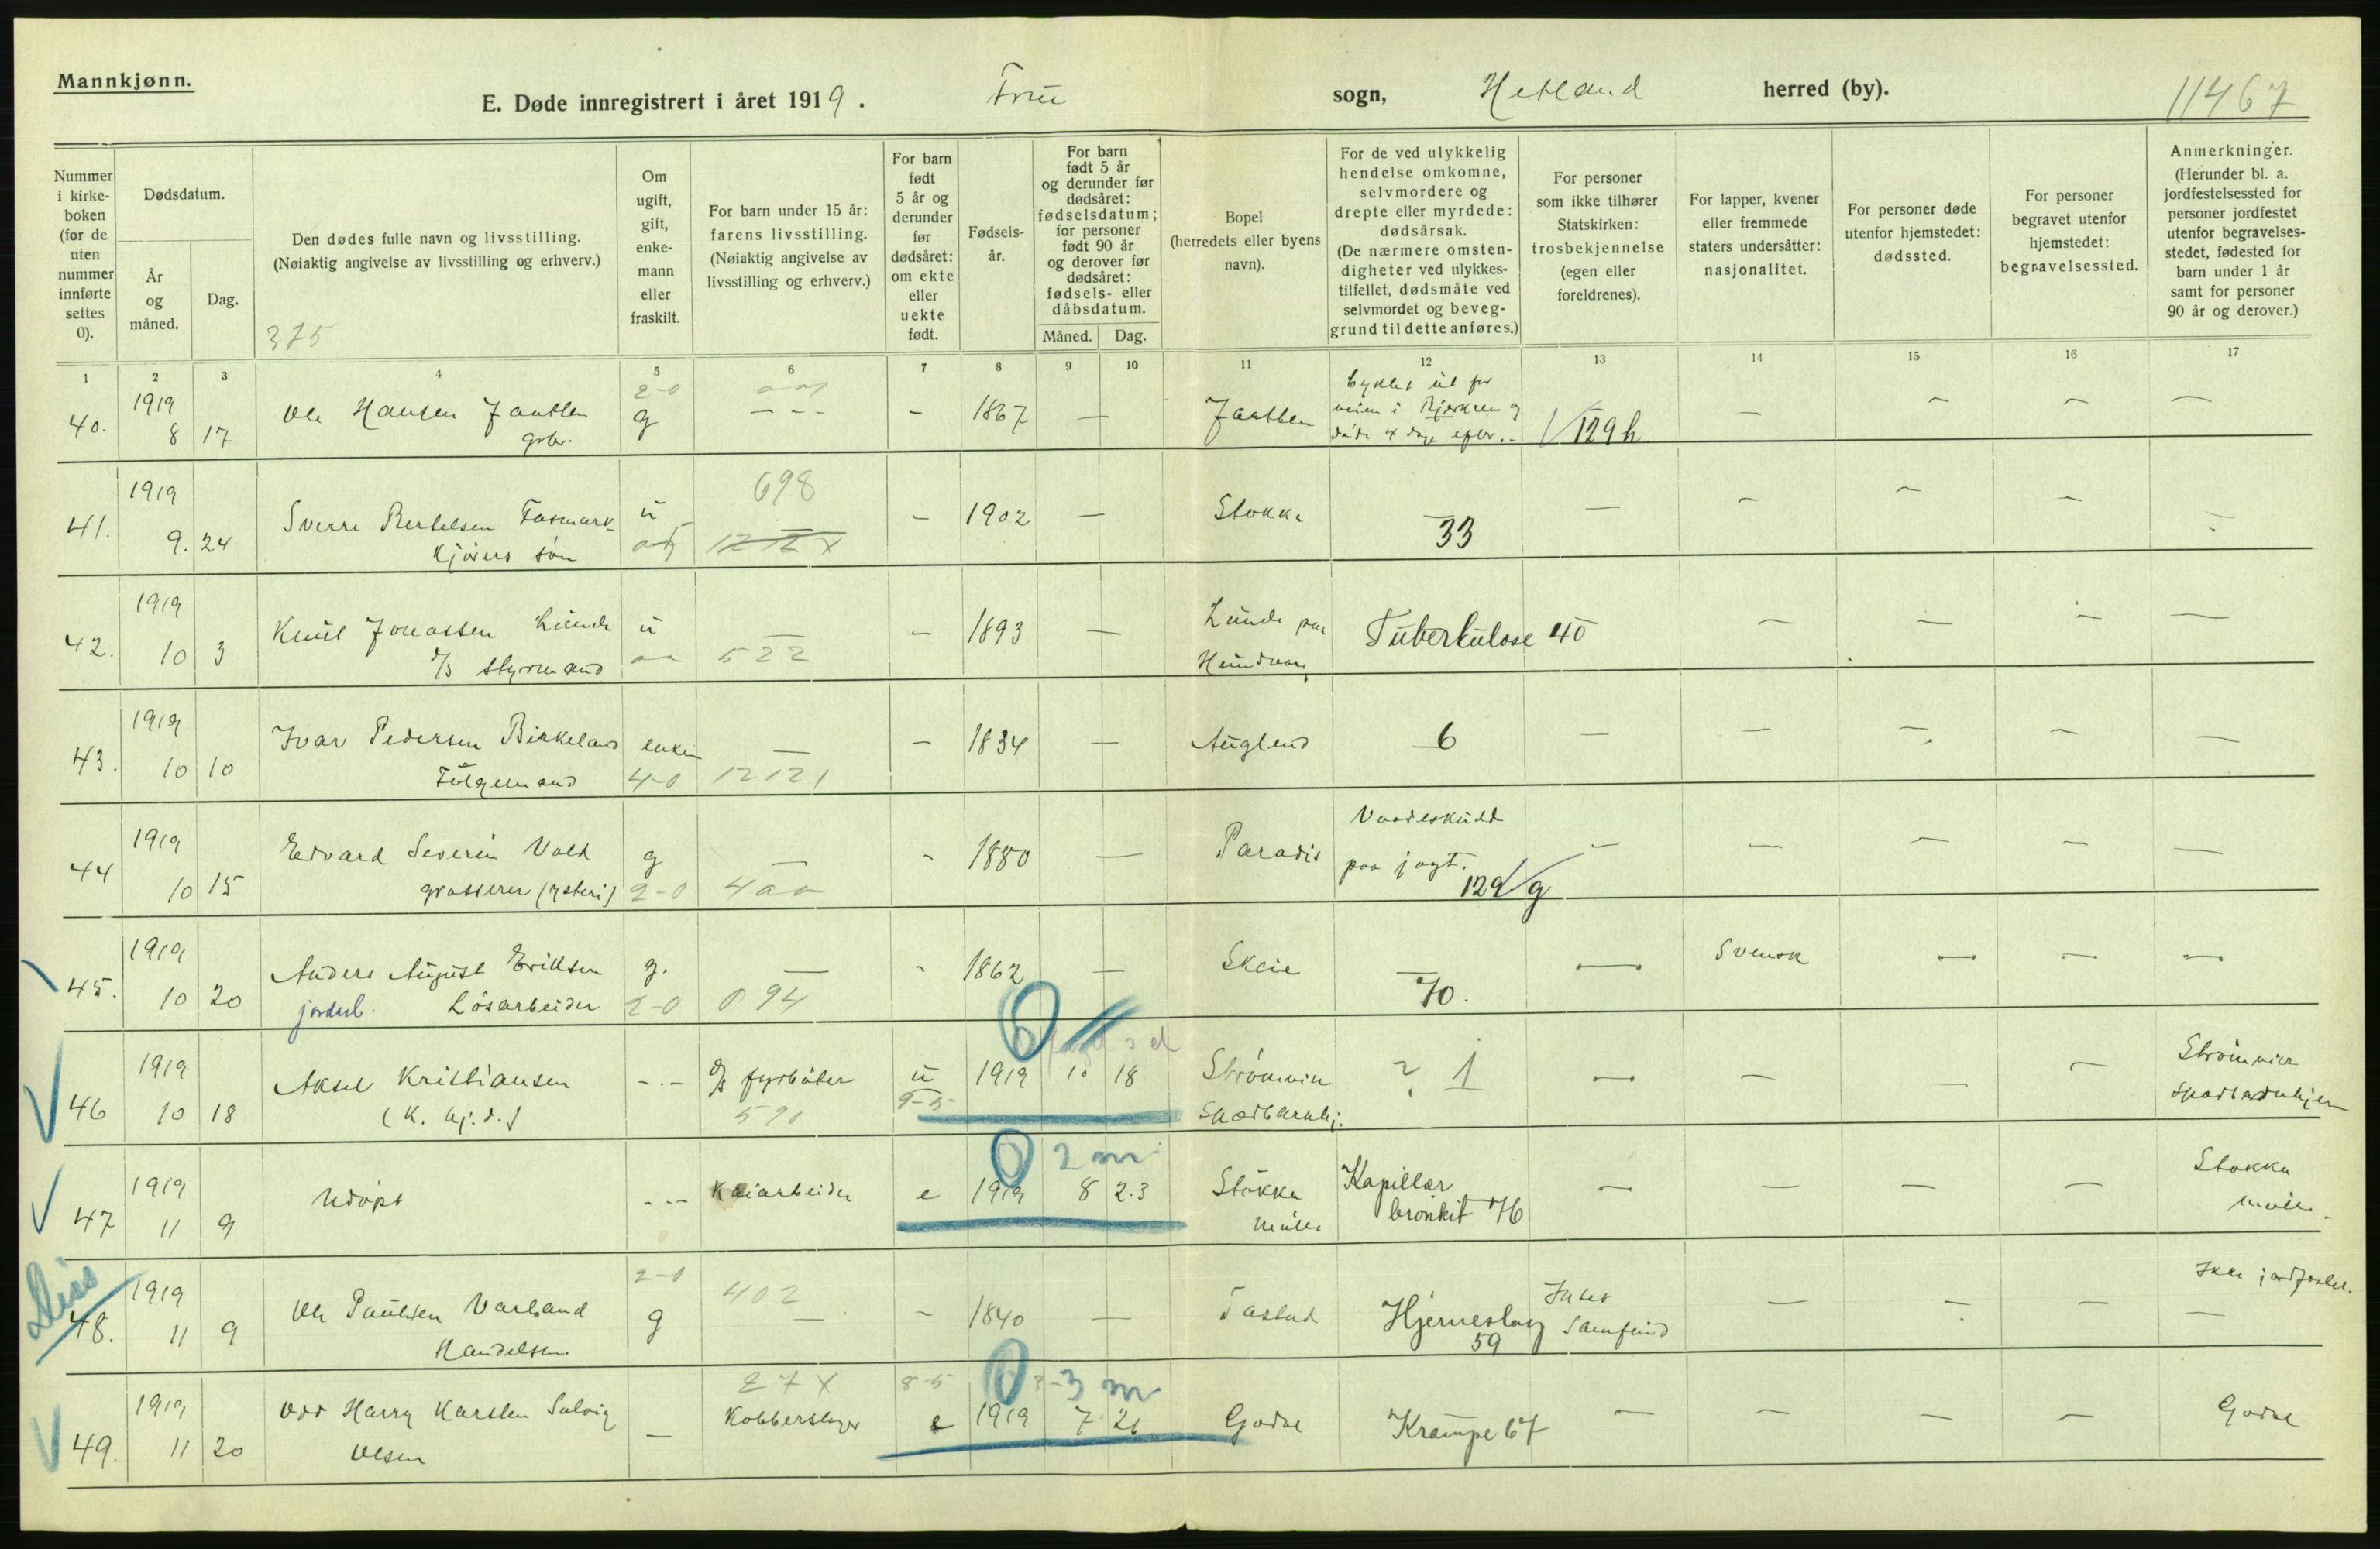 Mannkjønn.
E. Døde innregistrert i året 1919. Frue sogn, Hetland herred (by). 11467
Nummer i kirke-boken (for de uten nummer innførte settes 0).
Dødsdatum.
År og måned.
Dag.
Den dødes fulle navn og livsstilling.
(Nøiaktig angivelse av livsstilling og erhverv.)
375
Om ugift, gift, enke-mann eller fraskilt.
For barn under 15 år: farens livsstilling. (Nøiaktig angivelse av livsstilling og erhverv.)
For barn født 5 år og derunder før dødsåret: om ekte eller uekte født.
Fødsels-år.
For barn født 5 år og derunder før dødsåret: fødselsdatum; for personer født 90 år og derover før dødsåret: fødsels- eller dåbsdatum.
Måned. Dag.
Bopel (herredets eller byens navn).
For de ved ulykkelig hendelse omkomne, selvmordere og drepte eller myrdede: dødsårsak. (De nærmere omsten-digheter ved ulykkes-tilfellet, dødsmåte ved selvmordet og beveg-grund til dette anføres.)
For personer som ikke tilhører Statskirken: trosbekjennelse (egen eller foreldrenes).
For lapper, kvener eller fremmede staters undersåtter: nasjonalitet.
For personer døde utenfor hjemstedet: dødssted.
For personer begravet utenfor hjemstedet: begravelsessted.
Anmerkninger. (Herunder bl. a. jordfestelsessted for personer jordfestet utenfor begravelses-stedet, fødested for barn under 1 år samt for personer 90 år og derover.)
1 2 3 4 5 6 7 8 9 10 11 12 13 14 15 16 17
40. 1919 8 17 Ole Hansen Jaatten gbr. 2-0 g - - - - 1867 — Jaatten veien i Bjerkrem og døde 4 dage efter. - 129h — — — —
41. 1919 9. 24 Sverre Bertelsen Fasmark Kjørers søn u 698 - 1902 — Stokka 33 — — — —
42. 1919 10 3 Knut Jonassen Lunde d/s styrmand u — 522 - 1893 — Lunde paa Hundvaag Tuberkulose 40 — — — —
43. 1919 10 10 Ivar Pedersen Birkeland Følgemand enkem 4-0 — 12121 - 1834 — Auglend 6 — — — — —
44 1919 10 15 Edvard Severin Vold grosserer (ysteri) g 2-0 — - 1880 — Paradis Vaadeskudd paa jagt. 129/g — — — — —
45. 1919 10 20 Anders August Eriksen jorderb. Løsarbeider g. 2-0 — 094 - 1862 — Skeie 70. — Svensk — — —
46 1919 10 18 Aksel Kristiansen (K. hj. d.) -.- d/s fyrbøter 591 u 1919 10 18 Strømvik Spædbarnhj. ? 1 — — — — Strømvik Spædbarnhjem
47 1919 11 9 Udøpt - - - Kaiarbeider e 0 2 m 1919 8 23 Stokka mølle Kapillær bronkit 76 — — — — Stokka mølle
48. 1919 11 9 Ole Paulsen Varland Handelsm. 2-0 g 402 — - 1840 — Tastad Hjerneslag 59 Indre Samfund — — — Ikke jordfæstet. —
49. 1919 11 20 Odd Harry Karsten Solvig Olsen — 27X Kobberslager 8-5 e 0 3 m 1919 7 26 Godal Krampe 67 — — — — Godal